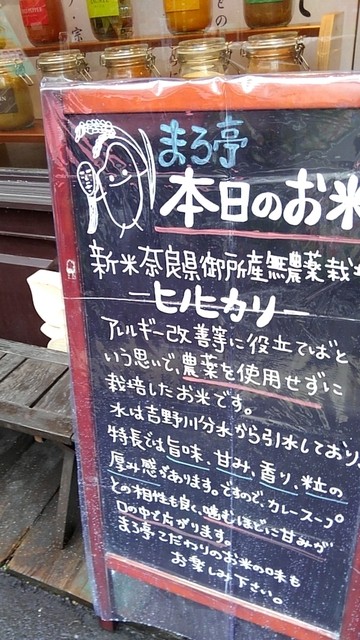 まろ亭
本日のお米
新米奈良県御所産無農薬栽
ーヒノヒカリー
アレルギー改善等に役立てばと
いう思いで、農薬を使用せずに
栽培したお米です。
水は吉野川分水から引水しており、
特長では旨味、甘み、香り、粒の
厚み感があります。ですので、カレースープ
との相性も良く、噛むほどに甘みが
口の中で広がります。
まろ亭こだわりのお米の味も
お楽しみ下さい。